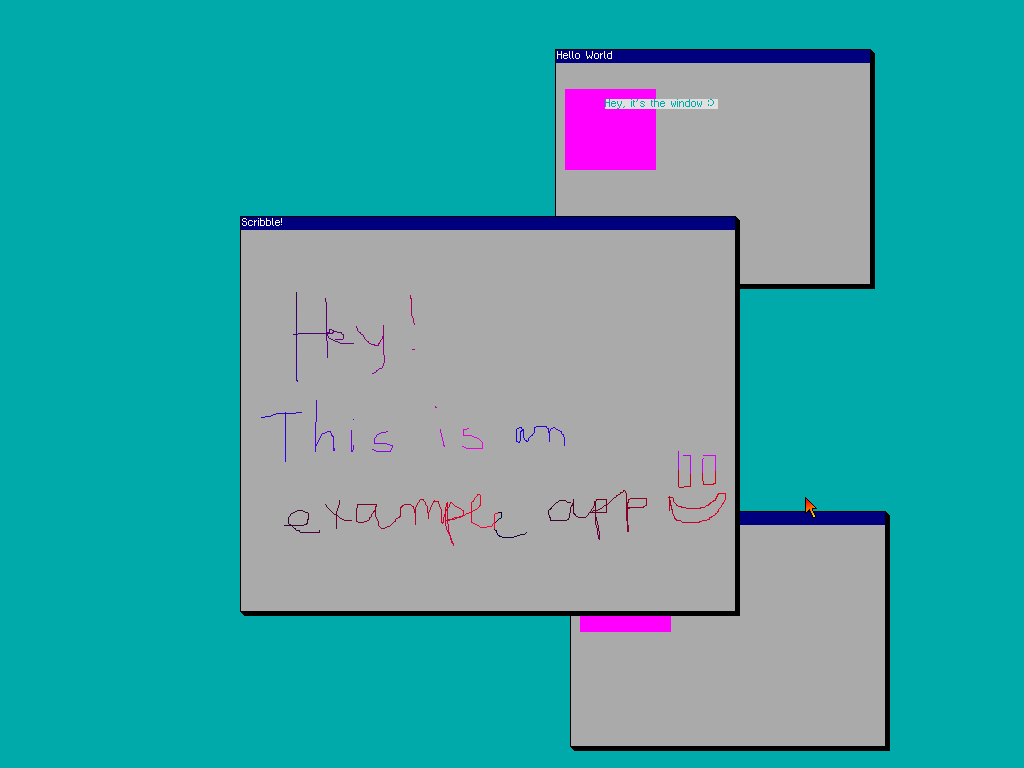 Hello World
Hey, it's the window :)
Scribble!
Hey!
This is an
example app